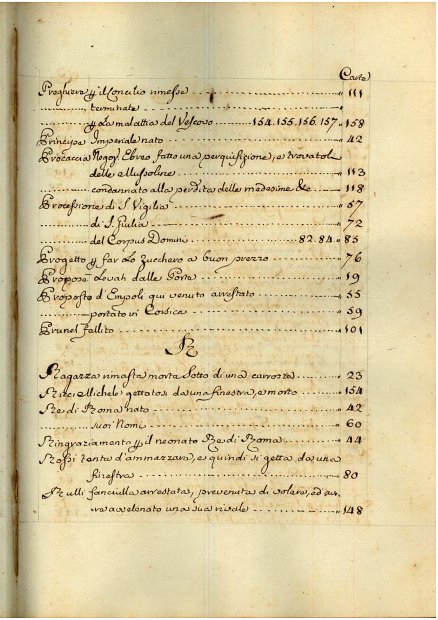 Carte
Preghiere p il Concilio rimesse 111
terminate
p la malattia del Vescovo 154. 155. 156. 157. 158
Principe Imperiale nato 42
Procaccia Negoz. Ebreo fatto una perquisizione, e trovatoli
delle Mussoline 113
condannato alla perdita delle medesime &c. 118
Processione di S. Vigilia 57
di S. Giulia 72
del Corpus Domini 82. 84. 85
Progetto p far lo Zucchero a buon prezzo 76
Propose levati dalle Porte 19
Proposto d'Empoli qui venuto arrestato 55
portato in Corsica 59
Prunel fallito 101
R
Ragazza rimasta morta sotto di una carrozza 23
Ricci Michele gettatosi da una finestra, e morto 154
Re di Roma nato 42
suoi Nomi 60
Ringraziamento p il neonato Re di Roma 44
Rossi tenta d'ammazzarsi, e quindi si getta da una
finestra 80
Rulli fanciulla arrestata, prevenuta di volere, ed av:
re avvelenato una sua rivale 148